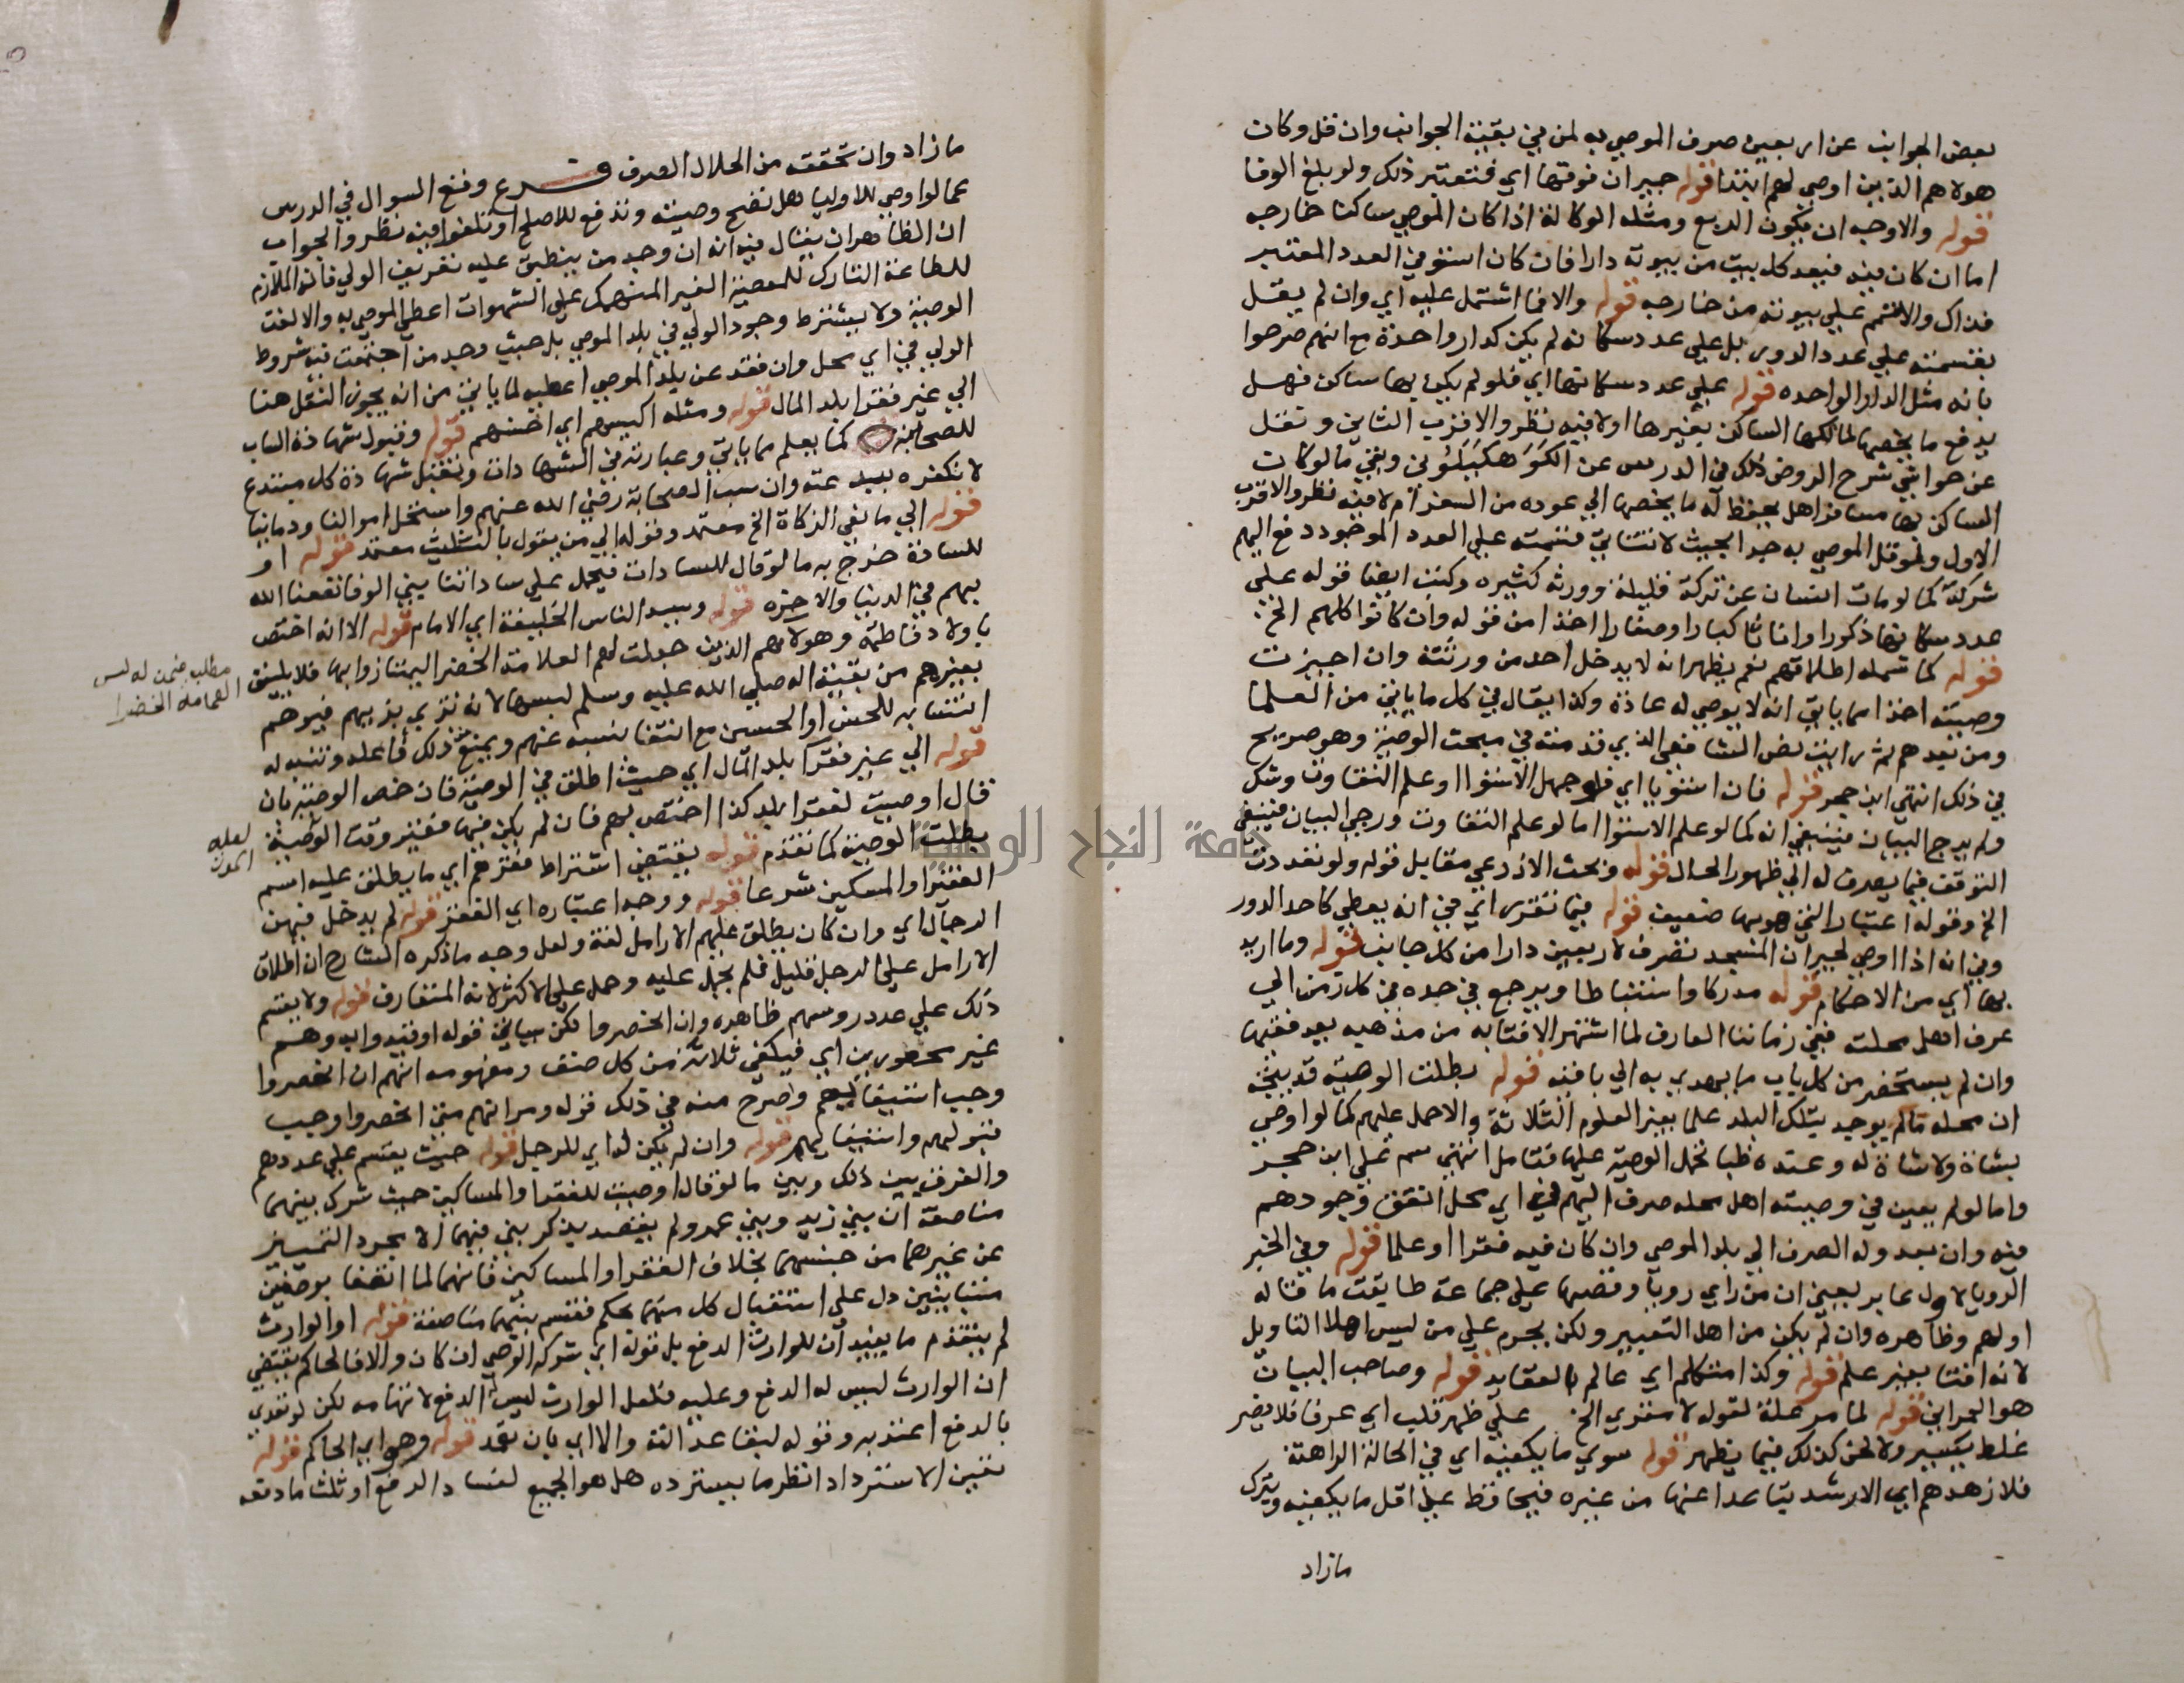 بعض الجوانب عن اربعين صرف الموصي به لمن في بقية الجوانب وان قل وكان
هولا هم الذين اوصي لهم ابتدا قوله جيران فوقها اي فتعتبر ذلك ولو بلغ الوفا
قوله والاوجه ان يكون الربع ومثله الوكالة اذا كان الموصي ساكنا خارجه
اما ان كان فيه فيعد كل بيت من بيوته دارا فان كان استوفي العدد المعتبر
فذاك والا تمم علي بيوته من خارجه قوله والا فما اشتمل عليه اي وان لم يقل
بقسمته علي عدد الدور بل علي عدد سكانه لم يكن كدار واحدة مع انهم صرحوا
بانه مثل الدار الواحده قوله علي عدد سكانها اي فلو لم يكن بها ساكن فهل
يدفع ما يخصها لمالكها الساكن بغيرها اولا فيه نظر والاقرب الثاني ونقل
عن حواشي شرح الروض ذلك في الدرس عن وبقي ما لو كان
الساكن بها مسافرا هل يحفظ له ما يخصها الي عوده من السفر ام لا فيه نظر والاقرب
الاول ولو قل الموصي به جدا بحيث لا تتاتي قسمته علي العدد الموجود دفع اليهم
شركة كما لو مات انسان عن تركة قليلة وورثه كثيره وكتب ايضا قوله علي
عدد سكانها ذكورا واناثا كبارا وصغارا اخذا من قوله وان كانوا كلهم الخ
قوله كما شمله اطلاقهم نعم يظهر انه لا يدخل احد من ورثته وان اجيزت
وصيته اخذا مما ياتي انه لا يوصي له عادة وكذا يقال في كل ما ياتي من العلما
ومن بعدهم ثم رايت نص الشافعي الذي قدمته في مبحث الوصية وهو صريح
في ذلك انتهي ابن حجر قوله فان استويا اي فلو جهل الاستوا او علم التفاوت وشك
ولم يرج البيان فينبغي انه كما لو علم الاستوا اما لو علم التفاوت ورجي البيان فينبغي
التوقف فيما يصرف له الي ظهور الحال قوله وبحث الاذرعي مقابل قوله ولو تعددت
الخ وقوله اعتبار التي هو بها ضعيف قوله فيما تقرر اي في انه يعطي كاحد الدور
وفي انه اذا اوصي لجيران المسجد تصرف لاربعين دارا من كل جانب قوله وما اريد
بها اي من الاحكام قوله مدركا واستنباطا ويرجع في حده في كل زمن الي
عرف اهل محلته ففي زماننا العارف لما اشتهر الافتا به من مذهبه يعد فقيها
وان لم يستحضر من كل باب ما يهدي به الي باقيه قوله بطلت الوصية قد يبحث
ان محله ما لم يوجد بتلك البلد علما بغير العلوم الثلاثة والا حمل عليهم كما لو اوصي
بشاة ولا شاة له وعنده ظبا تحمل الوصية عليها فتامل انتهي سم علي ابن حجر
واما لو لم يعين في وصيته اهل محله صرف اليهم في اي محل اتفق وجودهم
فيه وان بعد وله الصرف الي بلد الموصي وان كان فيه فقرا او علما قوله وفي الخبر
الرويا لاول عابر يعني ان من راي رويا وقصها علي جماعة طابقت ما قاله
اولهم وظاهره وان لم يكن من اهل التعبير ولكن يحرم علي من ليس اهلا التاويل
لانه افتا بغير علم قوله وكذا متكلم اي عالم بالعقايد قوله وصاحب البيان
هو العمراني قوله لما مر علة لقوله لا مقري الخ علي ظهر قلب اي عرفا فلا يضر
غلط يسير ولا لحن كذلك فيما يظهر قوله سوي ما يكفيه اي في الحالة الراهنة
فلا زهدهم اي الاشد تباعدا عنها من غيره فيحافظ علي اقل ما يكفيه ويترك
مازاد
ما زاد وان تحققت من الحلال الصرف فرع وقع السوال في الدرس
عما لو اوصي للاوليا هل تصح وصيته وتدفع للاصلح او تلغوا فيه نظر والجواب
ان الظاهر ان يقال فيه انه ان وجد من ينطبق عليه تعريف الولي فانه الملازم
للطاعة التارك للمعصية الغير المنهمك علي الشهوات اعطي الموصي به والا لغت
الوصية ولا يشترط وجود الولي في بلد الموصي بل حيث وجد من اجتمعت فيه شروط
الولي في اي محل وان فقد عن بلد الموصي اعطيه لما ياتي من انه يجوز النقل هنا
الي غير فقرا بلد المال قوله ومثله اكيسهم اي احسنهم قوله وقبول شهادة الساب
للصحابة كما يعلم مما ياتي وعبارته في الشهادات وتقبل شهادة كل مبتدع
لا نكفره ببدعته وان سب الصحابة رضي الله عنهم واستحل اموالنا ودمانا
قوله الي ما نعي الزكاة الخ معتمد وقوله الي من يقول بالتثليث معتمد قوله او
للسادة خرج به ما لو قال للسادات فيحمل علي ساداتنا بني الوفا نفعنا الله
بهم في الدنيا والاخره قوله وسيد الناس الخليفة اي الامام قوله الا انه اختص
باولاد فاطمة وهولا هم الذين جعلت لهم العلامة الخضرا ليمتازوا بها فلا يليق
بغيرهم من بقية اله صلي الله عليه وسلم لبسها لانه تزي بزيهم فيوهم
انتسابه للحسن او الحسين مع انتفا نسبه عنهم ويمنع ذلك فاعله وتنبه له
قوله الي غير فقرا بلد المال اي حيث اطلق في الوصية فان خص الوصية بان
قال اوصيت لفقرا بلد كذا اختص بهم فان لم يكن فيها فقير وقت الوصية
بطلت الوصية كما تقدم قوله يقتضي اشتراط فقرهم اي ما يطلق عليه اسم
الفقرا والمسكين شرعا قوله ووجه اعتباره اي الفقر قوله لم يدخل فيهن
الرجال اي وان كان يطلق عليهم الارامل لغة ولعل وجه ما ذكره الشارح ان اطلاق
الارامل علي الرجل قليل فلم يحمل عليه وحمل علي الاكثر لانه المتعارف قوله ولا يقسم
ذلك علي عدد روسهم ظاهره وان انحصروا لكن سياتي قوله او قيدوا به وهم
غير محصورين اي فيكفي ثلاثة من كل صنف ومفهومه انهم ان انحصروا
وجب استيعابهم واصرح منه في ذلك قوله ومر انهم متي انحصروا وجب
قبولهم واستيعابهم قوله وان لم يكن له اي للرجل قوله حيث يقسم علي عددهم
والفرق بين ذلك وبين ما لو قال اوصيت للفقرا والمساكين حيث شرك بينهما
مناصفة ان بني زيد وبني عمرو لم يقصد بذكر بني فيهما الا مجرد التمييز
عن غيرهما من جنسهما بخلاف الفقرا والمساكين فانهما لما اتصفا بوصفين
متباينين دل علي استقبال كل منهما بحكم فقسم بينهما مناصفة قوله او الوارث
لم يتقدم ما يفيد ان للوارث الدفع بل قوله اي شركه الوصي ان كان والا فالحاكم يقتضي
ان الوارث ليس له الدفع وعليه فلعل الوارث ليس له الدفع لاتهامه لكن لو تعدي
بالدفع اعتد به وقوله لبقا عدالته والا اي بان تعمد قوله وهو اي الحاكم قوله
تعين الاسترداد انظر ما يسترده هل هو الجميع لفساد الدفع او ثلث ما دفعه
مطلب فيمن له لبس
العمامه الخضرا
لعله
الموت
جامعة النجاح الوطنية